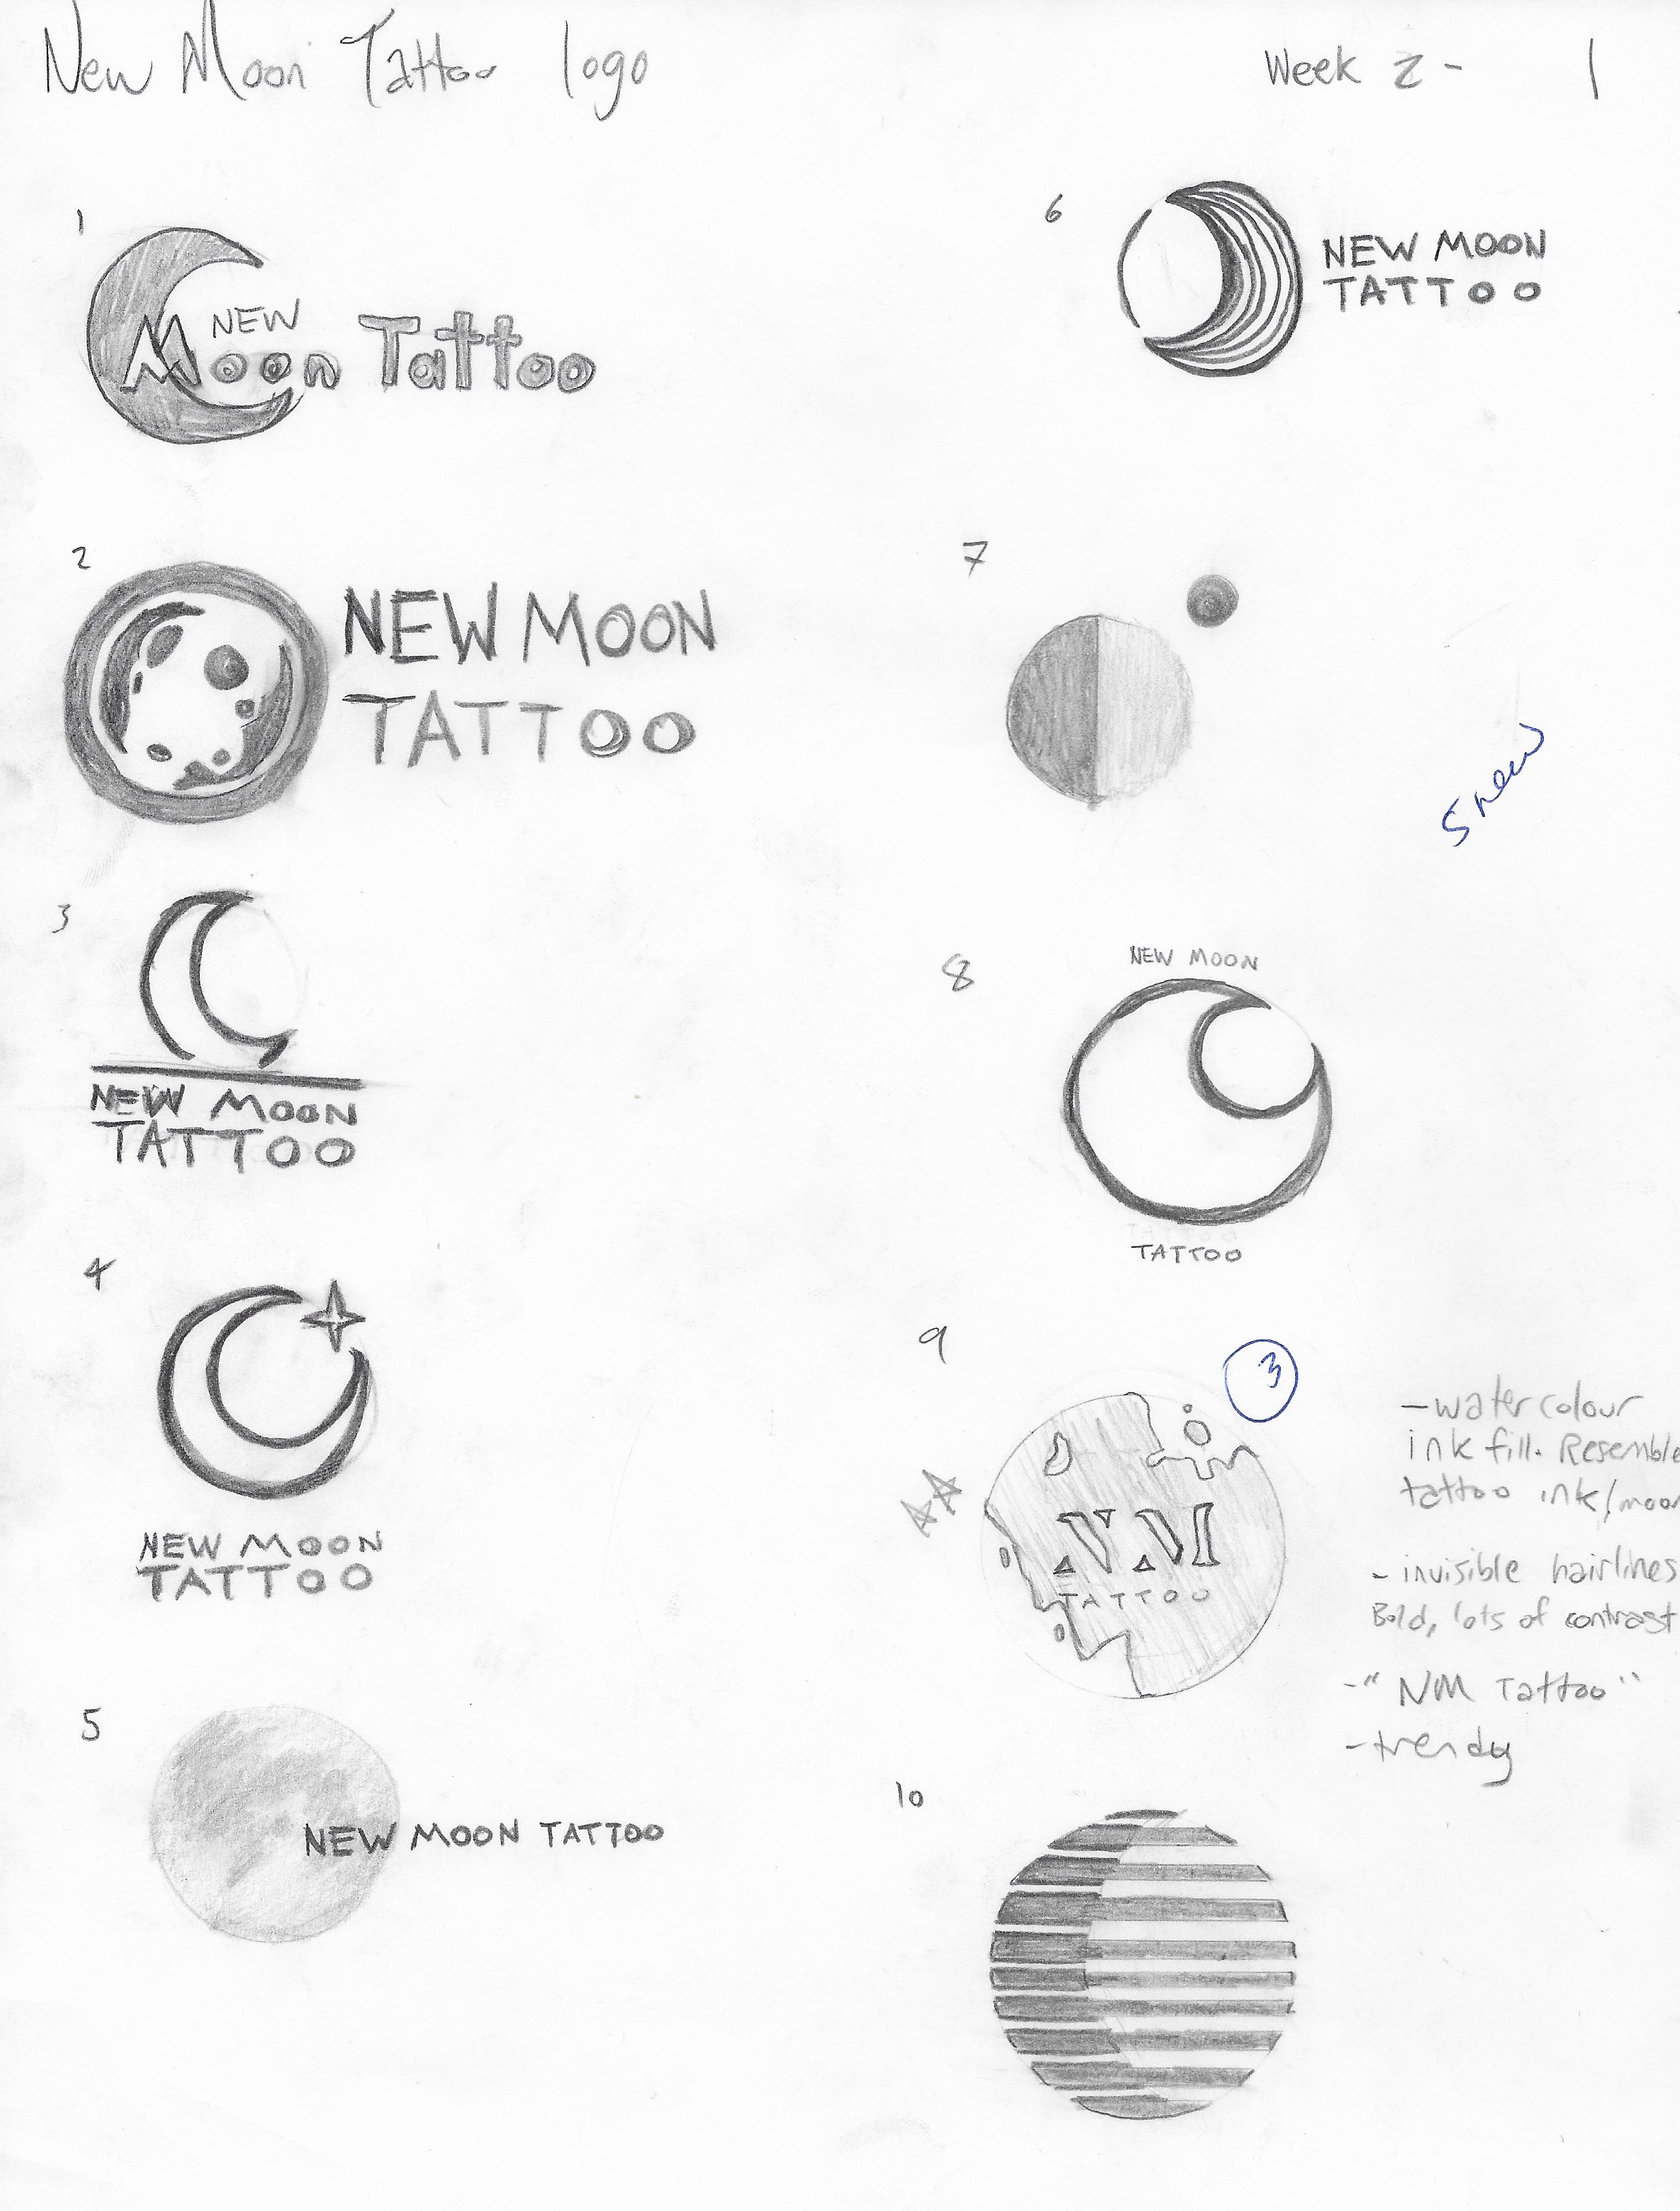 New Moon Tattoo logo
Week 2 - 1
1
NEW
Moon Tattoo
2
NEW MOON
TATTOO
3
NEW MOON
TATTOO
4
NEW MOON
TATTOO
5
NEW MOON TATTOO
6
NEW MOON
TATTOO
7
5 new
8
NEW MOON
TATTOO
9
3
NM
TATTOO
- watercolour
ink fill. Resemble
tattoo ink/moon
- invisible hairlines
Bold, lots of contrast
- "NM Tattoo"
- trendy
10